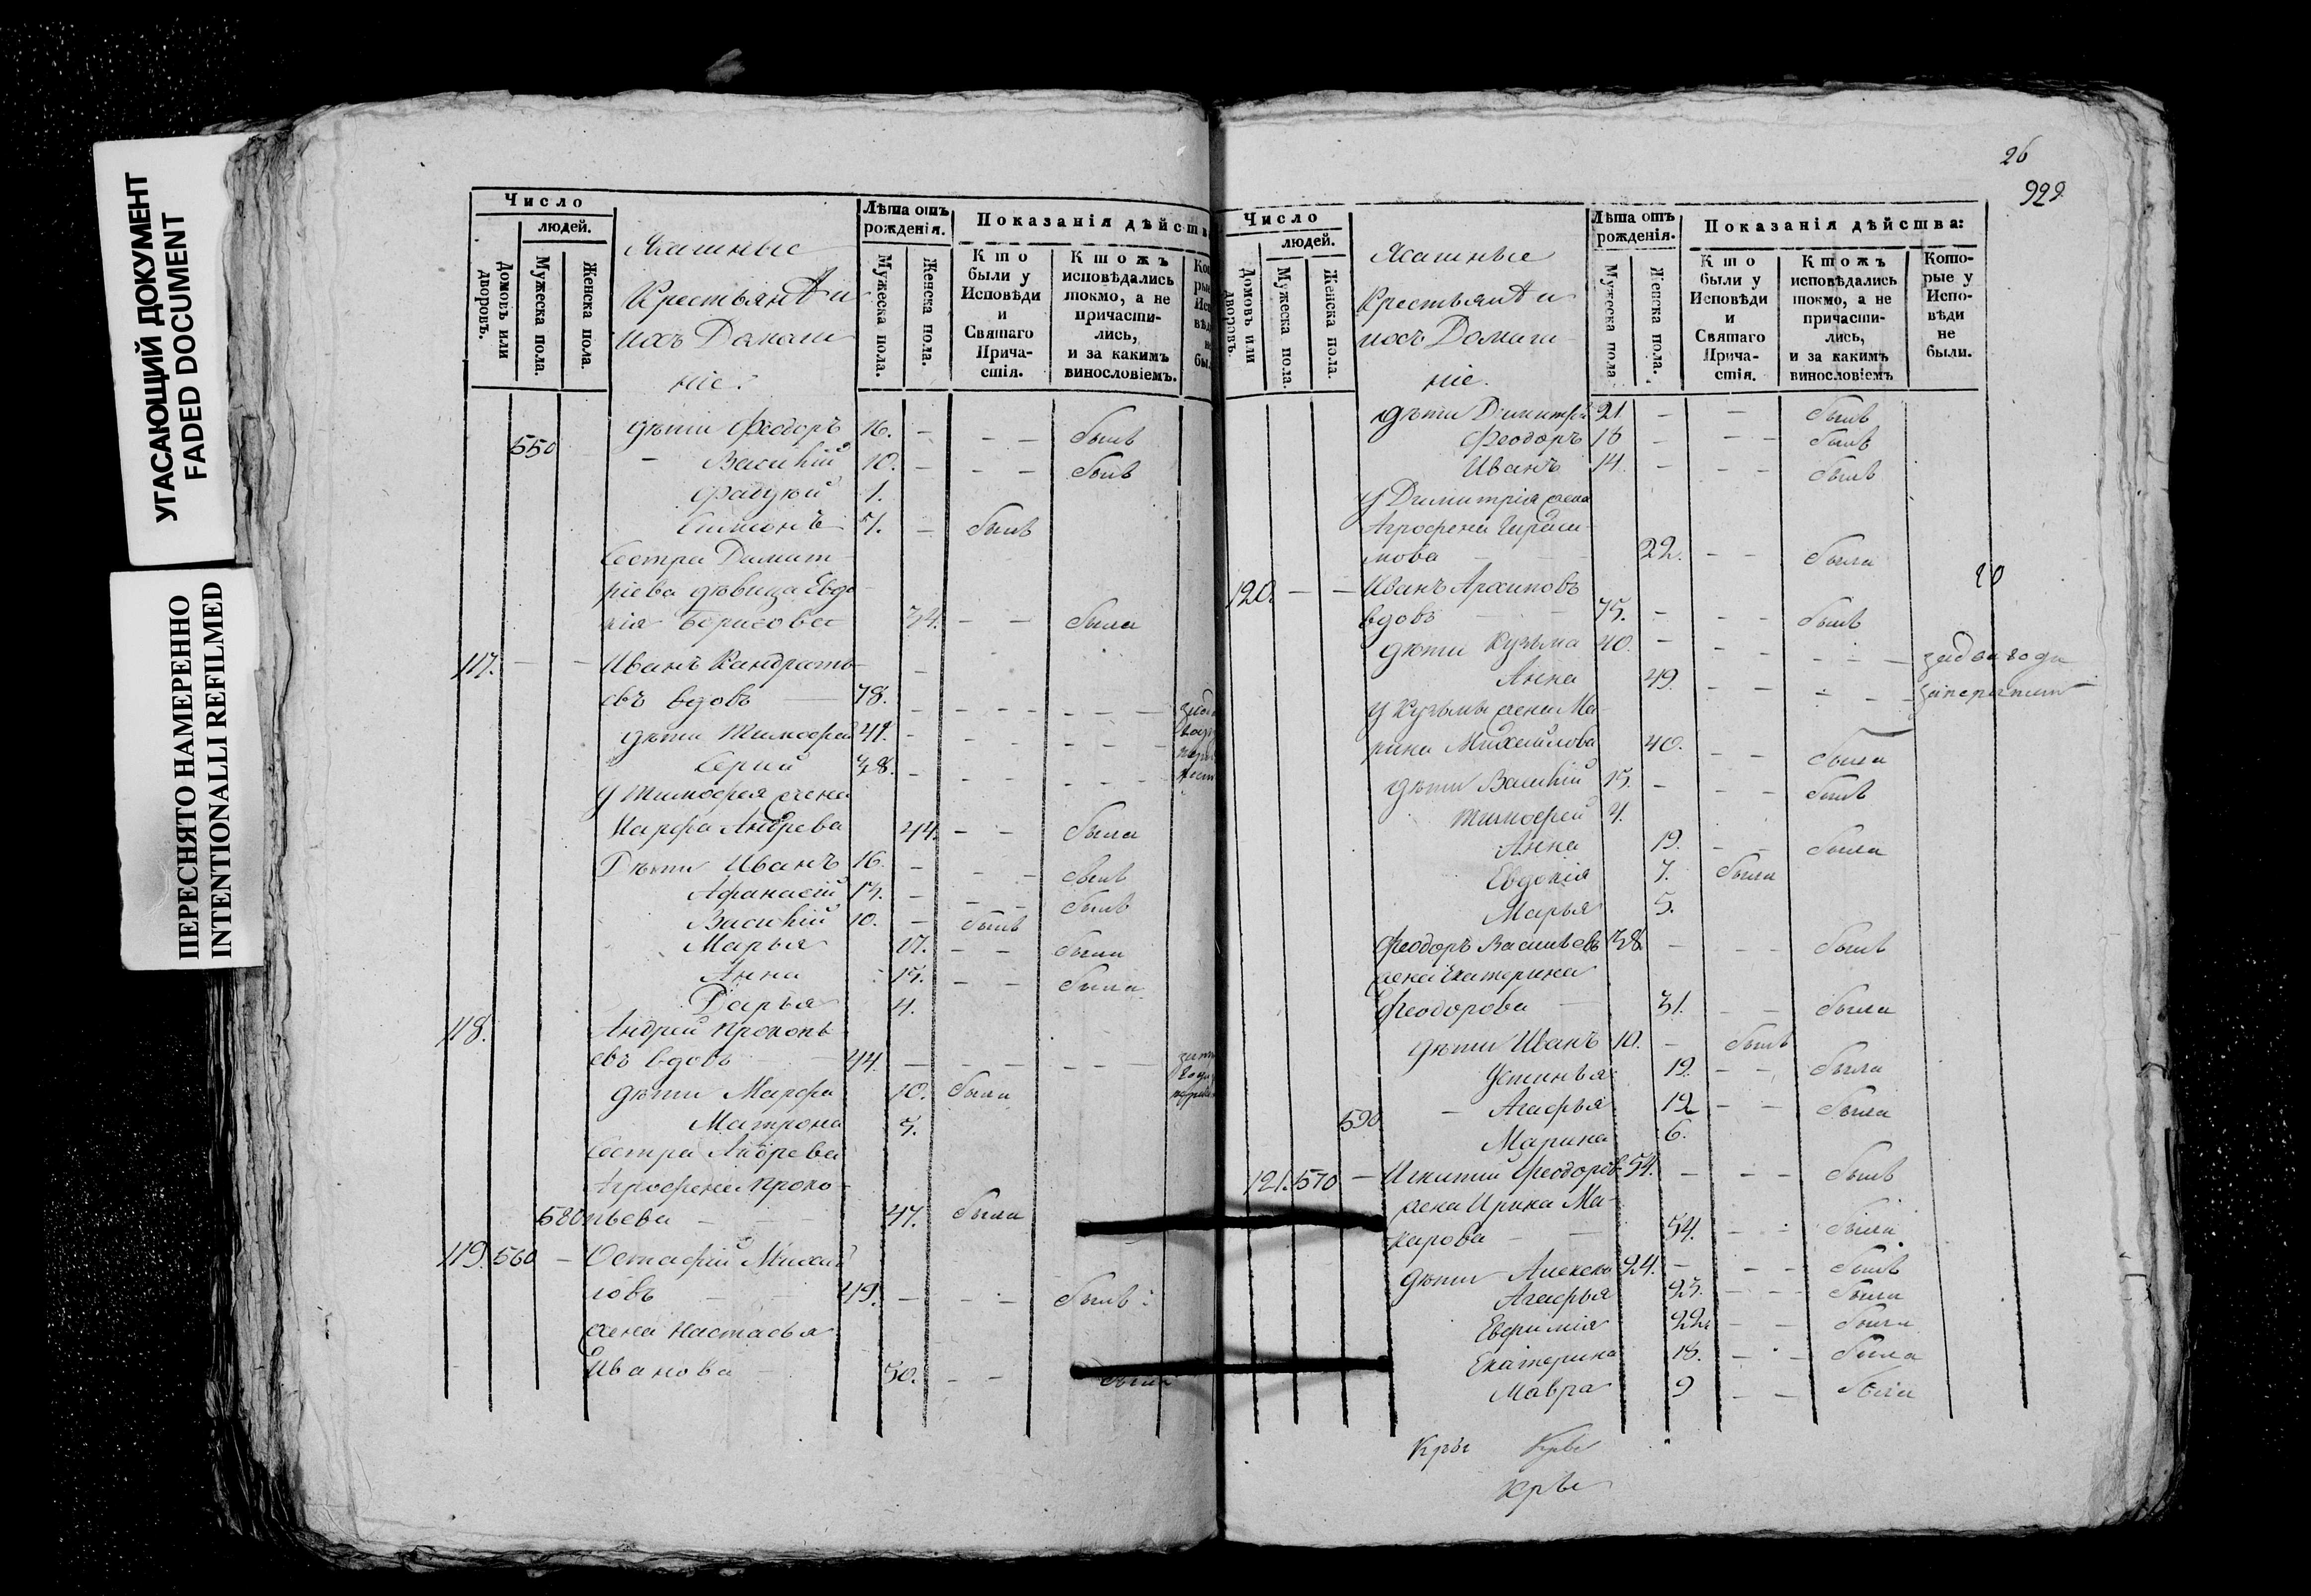 УГАСАЮЩИЙ ДОКУМЕНТ
FADED DOCUMENT
ПЕРЕСНЯТО НАМЕРЕННО
INTENTIONALLI REFILMED
Число
людей.
Домовъ или дворовъ.
Мужеска пола.
Женска пола.
Ясашные
Крестьянѣ и
ихъ Домаш
ніе.
Лѣта отъ рожденія.
Мужеска пола.
Женска пола.
Показанія дѣйств
Кто были у Исповѣди и Святаго Прича-стія.
Ктожъ исповѣдались токмо, а не причасти-лись, и за какимъ винословіемъ.
550 дѣти Феодоръ 16. — — — былъ
— Василій 10. — — — былъ
1.
Симонъ 7. — былъ
Сестра Димит
ріева дѣвица Евдо
кія Борисова 34. — — была
117. — — Иванъ Кандрать
евъ вдовъ 78. — — — — — —
дѣти Тимофей 41. — — — — — —
Сергій 38. — — — — — —
у Тимофея жена
Марфа Андрева 44. — — была
Дѣти Иванъ 16. — — — былъ
Афанасій 14. — — — былъ
Василій 10. — былъ
Марья 17. — — была
Анна 15. — — была
Дарья 4.
118. Андрей Прокопь
евъ вдовъ 44. — — — — — —
дѣти Марфа 10. была
Матрона 5.
Сестра Андрева
Агрофена Проко
580 пьева — — 47. была
119. 560 — Остафій Михай
ловъ — — 49. — — — былъ
жена Настасья
Иванова — 50. — — была
26
929
Число
людей.
Домовъ или дворовъ.
Мужеска пола.
Женска пола.
Ясашные
Крестьянѣ и
ихъ Домаш
ніе.
Лѣта отъ рожденія.
Мужеска пола
Женска пола.
Показанія дѣйства:
Кто были у Исповѣди и Святаго Прича-стія.
Ктожъ исповѣдались токмо, а не причасти-лись, и за какимъ винословіемъ
Кото-рые у Испо-вѣди не были.
дѣти Димитрій 21. — — былъ
Феодоръ 18 — — — былъ
Иванъ 14. — — — былъ
у Димитрія жена
Агрофена Гираси
мова — — 22. — — была
120. — — Иванъ Архиповъ 20
вдовъ — — 75. — — — былъ
дѣти Кузьма 40. — — — — — — за два года
Анна 49. — — — —
у Кузьмы жена Ма
рина Михайлова 40. — — была
дѣти Василій 15. — — — былъ
Тимофей 4.
Анна 19. — — была
Евдокія 7. была
Марья 5.
Феодоръ Васильевъ 38. — — — былъ
жена Екатерина
Феодорова — 31. — — была
дѣти Иванъ 10. — былъ
Устинья 19. — — была
590 — Агафья 12 — — была
Марина 6.
121. 570 — Игнатій Феодоровъ 54. — — — былъ
жена Ирина Ма
карова — — 54. — — была
дѣти — Алексей 24. — — — былъ
Агафья 23. — — — была
Евфимія 22. — — была
Екатерина 18. — — была
Мавра 9 — — была